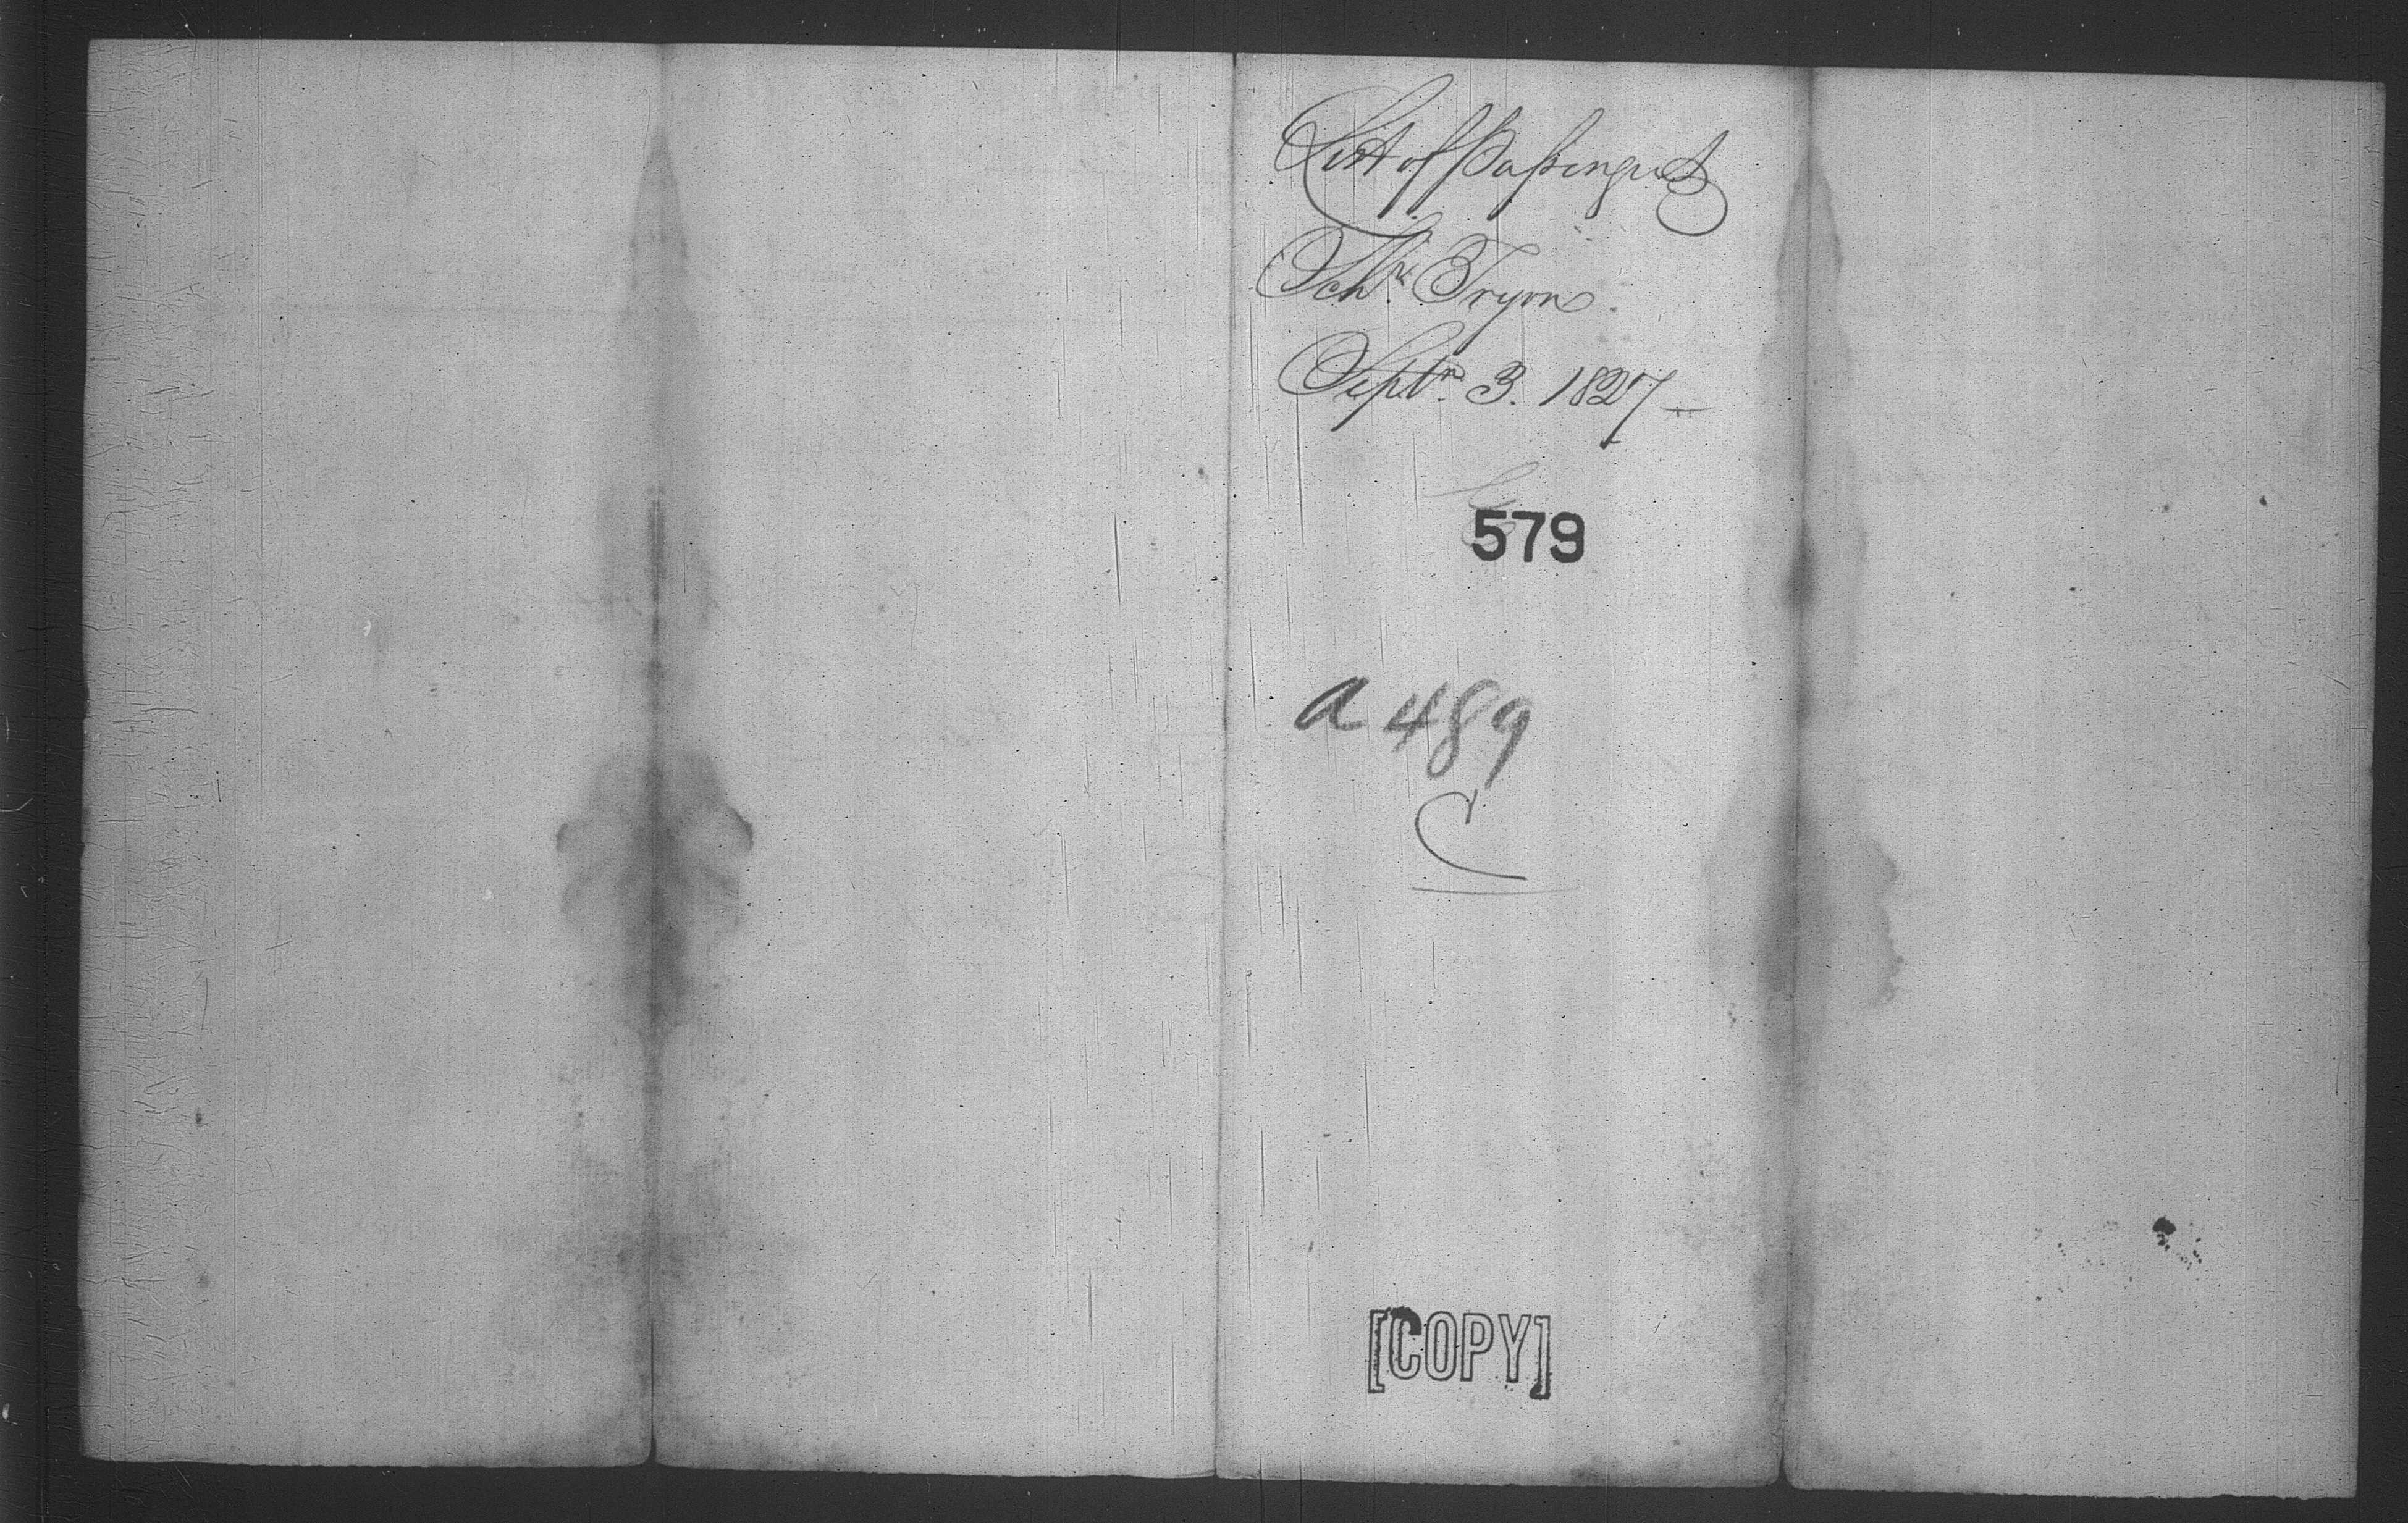 List of Passengers
Schr. Tryon.
Septr. 3. 1827
579
a 489
C
[COPY]